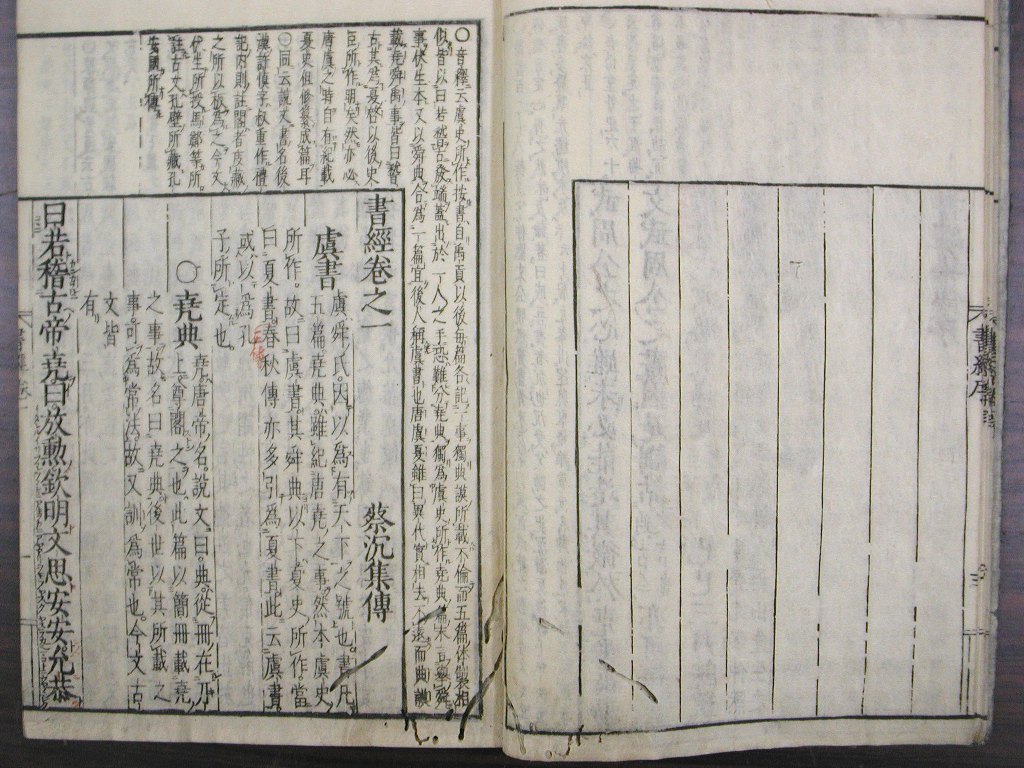 書經序
書經卷之一
蔡沉集傳
虞書
虞舜氏因以爲有天下之號也書凡
五篇堯典雖紀唐堯之事然本虞史
所作故曰虞書其舜典以下夏史所作當
曰夏書春秋傳亦多引爲夏書此云虞書
或以爲孔
子所定也
○堯典
堯唐帝名說文曰典從冊在丌
上尊閣之也此篇以簡冊載堯
之事故名曰堯典後世以其所載之
事可爲常法故又訓爲常也今文古
文皆
有
曰若稽古帝堯曰放勲欽明文思安安允恭
○音釋云虞史所作按書自禹貢以後每篇各記一事獨典謨所載不倫而五篇体製相
似皆以曰若稽古發端蓋出於一人之手恐難分堯典獨爲虞史所作堯典篇末言舜
事伏生本又以舜典合爲一篇宜後人稱虞書也唐虞夏雖曰異代實相去不遠而典謨
載堯舜禹事皆曰稽
古其爲夏啓以後史
臣所作明矣然亦必
唐虞之時自有紀載
夏史但修纂成篇耳
○同云說文書名後
漢許慎字叔重作禮
記內則註閣者庋藏
之所以板爲之今文
伏生所授馬鄭等所
註古文孔壁所藏孔
安國所傳